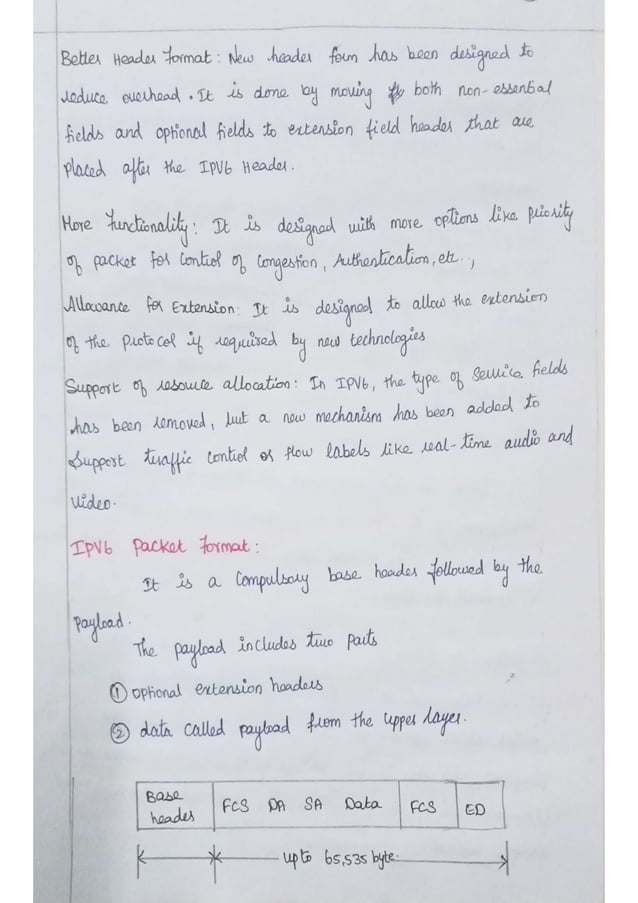 Better Header Format: New header form has been designed to
reduce overhead. It is done by moving both non-essential
fields and optional fields to extension field header that are
placed after the IPV6 Header.
More Functionality: It is designed with more options like Priority
of packet for control of congestion, Authentication, etc..,
Allowance for Extension: It is designed to allow the extension
of the protocol if required by new technologies
Support of resource allocation: In IPV6, the type of service fields
has been removed, but a new mechanism has been added to
Support traffic control or flow labels like real-time audio and
video.
IPV6 Packet Format:
It is a Compulsory base header followed by the
Payload.
The payload includes two parts
① optional extension headers
② data called payload from the upper layer.
Base header FCS DA SA Data FCS ED
upto 65,535 byte.